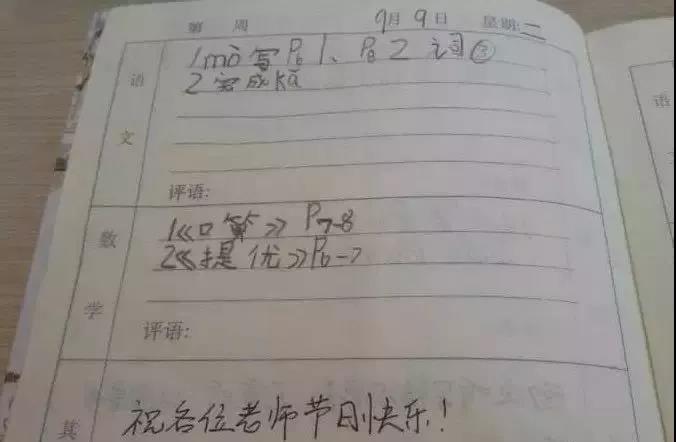 第 周 9月9日 星期:二
语文
1mò写P6 1、P8 2 词③
2 完成kǎ
评语:
数学
1《口算》P7-8
2《提优》P6-7
评语:
其
祝各位老师节刚快乐!
语